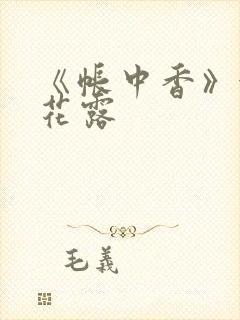 《帐中香》
花露
毛義